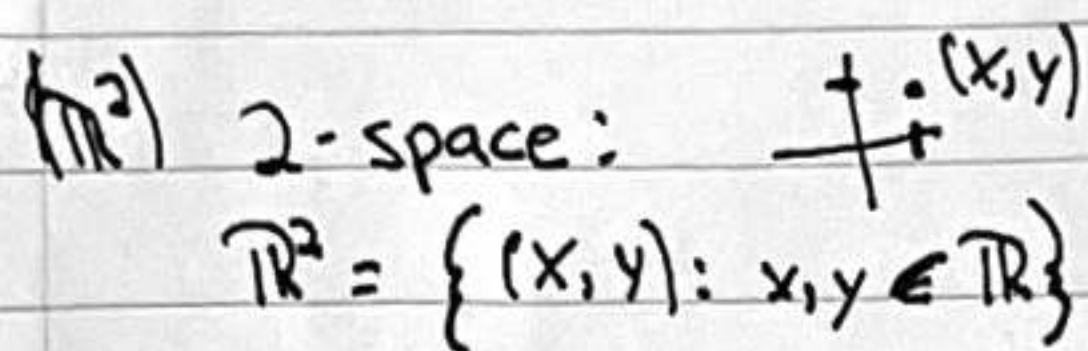 (ℝ²) 2-space: (x,y)
ℝ² = {(x,y): x,y ∈ ℝ}